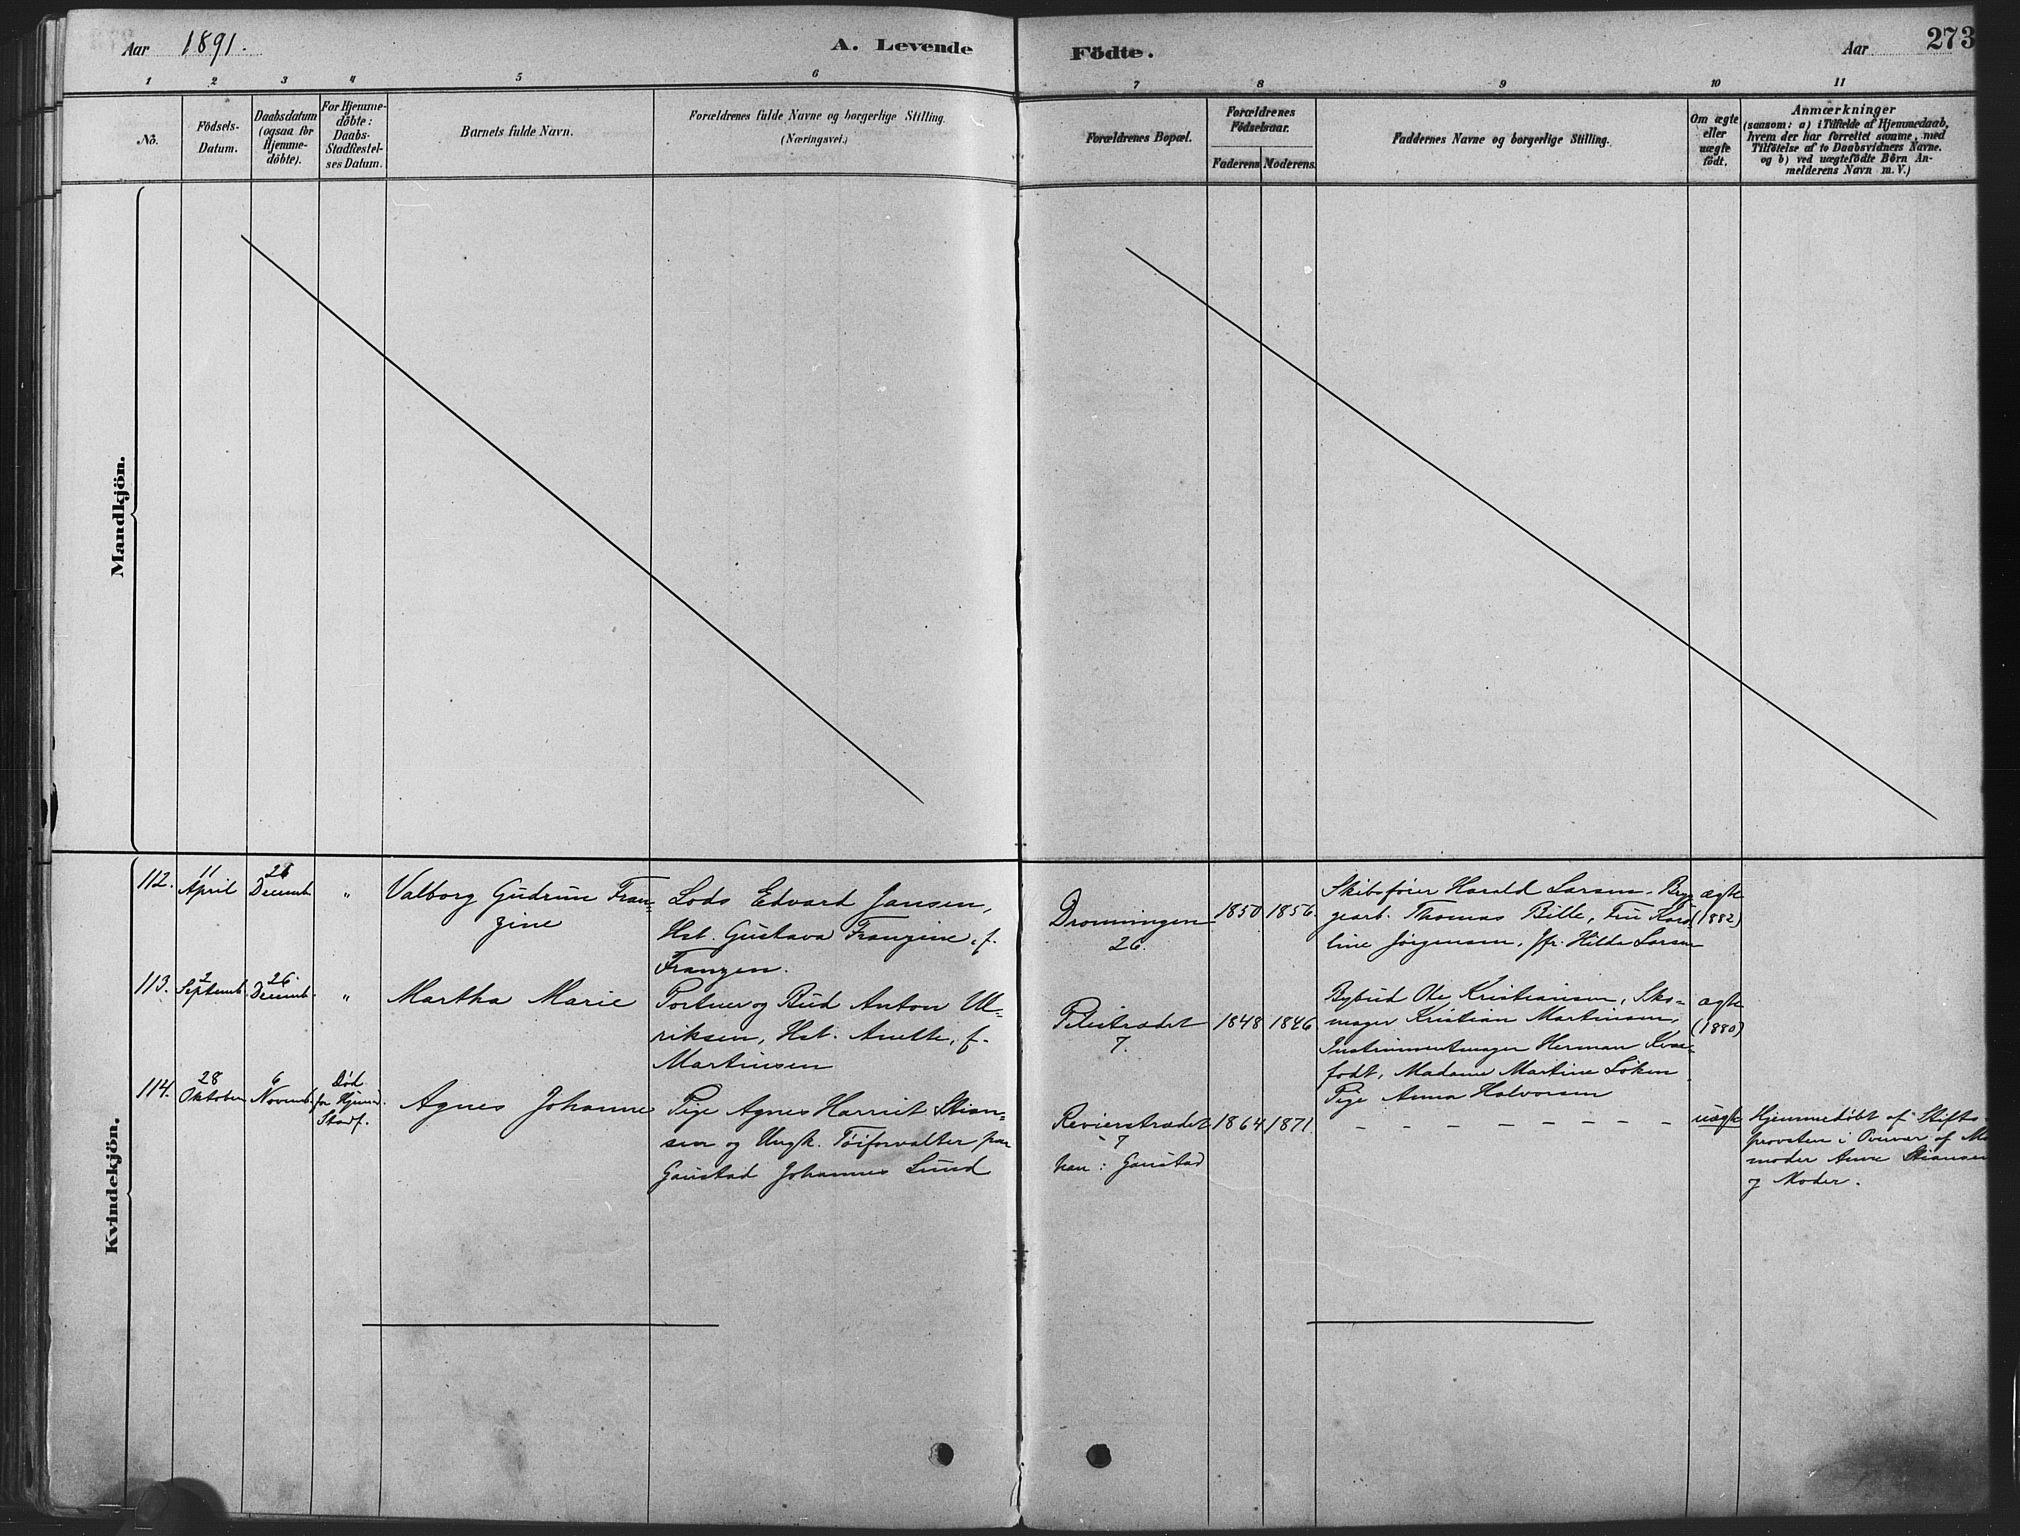 Aar 1891.
A. Levende Födte.
Aar 273
1 2 3 4 5 6 7 8 9 10 11
No.
Födsels-
Datum.
Daabsdatum
(ogsaa for
Hjemme-
döbte).
For Hjemme-
döbte:
Daabs-
Stadfestel-
ses Datum.
Barnets fulde Navn.
Forældrenes fulde Navne og borgerlige Stilling.
(Næringsvei.)
Forældrenes Bopæl.
Forældrenes
Födselsaar.
Faderens Moderens.
Faddernes Navne og borgerlige Stilling.
Om ægte
eller
uægte
födt.
Anmærkninger
(saasom: a) i Tilfælde af Hjemmedaab,
hvem der har forrettet samme, med
Tilföielse af to Daabsvidners Navne.
og b) ved uægtefödte Börn An-
melderens Navn m. V.)
Mandkjön.
Kvindekjön.
112.
11
April
26
Decemb.
"
Valborg Gudrun Fran-
zine
Lods Edvard Jansen,
Hst. Gustava Franzine, f.
Franzen.
Dronningen
26.
1850 1856.
Skibsfører Harald Larsen, Bryg-
gearb. Thomas Bille, Fru Karo-
line Jørgensen, Jfr. Hilda Larsen
ægte
(1882)
113.
2
Septemb.
26
Decemb.
"
Martha Marie
Portner og Bud Anton Ul-
riksen, Hst. Anette, f.
Martinsen
Pilestrædet
7.
1848 1846
Bybud Ole Kristiansen, Sko-
mager Kristian Martinsen,
Instrumentmager Herman
fodt, Madame Martine Løken
Pige Anna Halvorsen
ægte
(1880)
114.
28
Oktober
6
Novemb.
Død
før Hjemmed.
Stadf.
Agnes Johanne
Pige Agnes Harriet Stian-
sen og Ungk. Tøiforvalter paa
Gaustad Johannes Lund
Revierstrædet
7
han: Gaustad
1864 1871
– – – – – – – – –
uægte
Hjemmedøbt af Stifts-
provsten i Overvær af Mo
moder Anne Stiansen
og Moder.